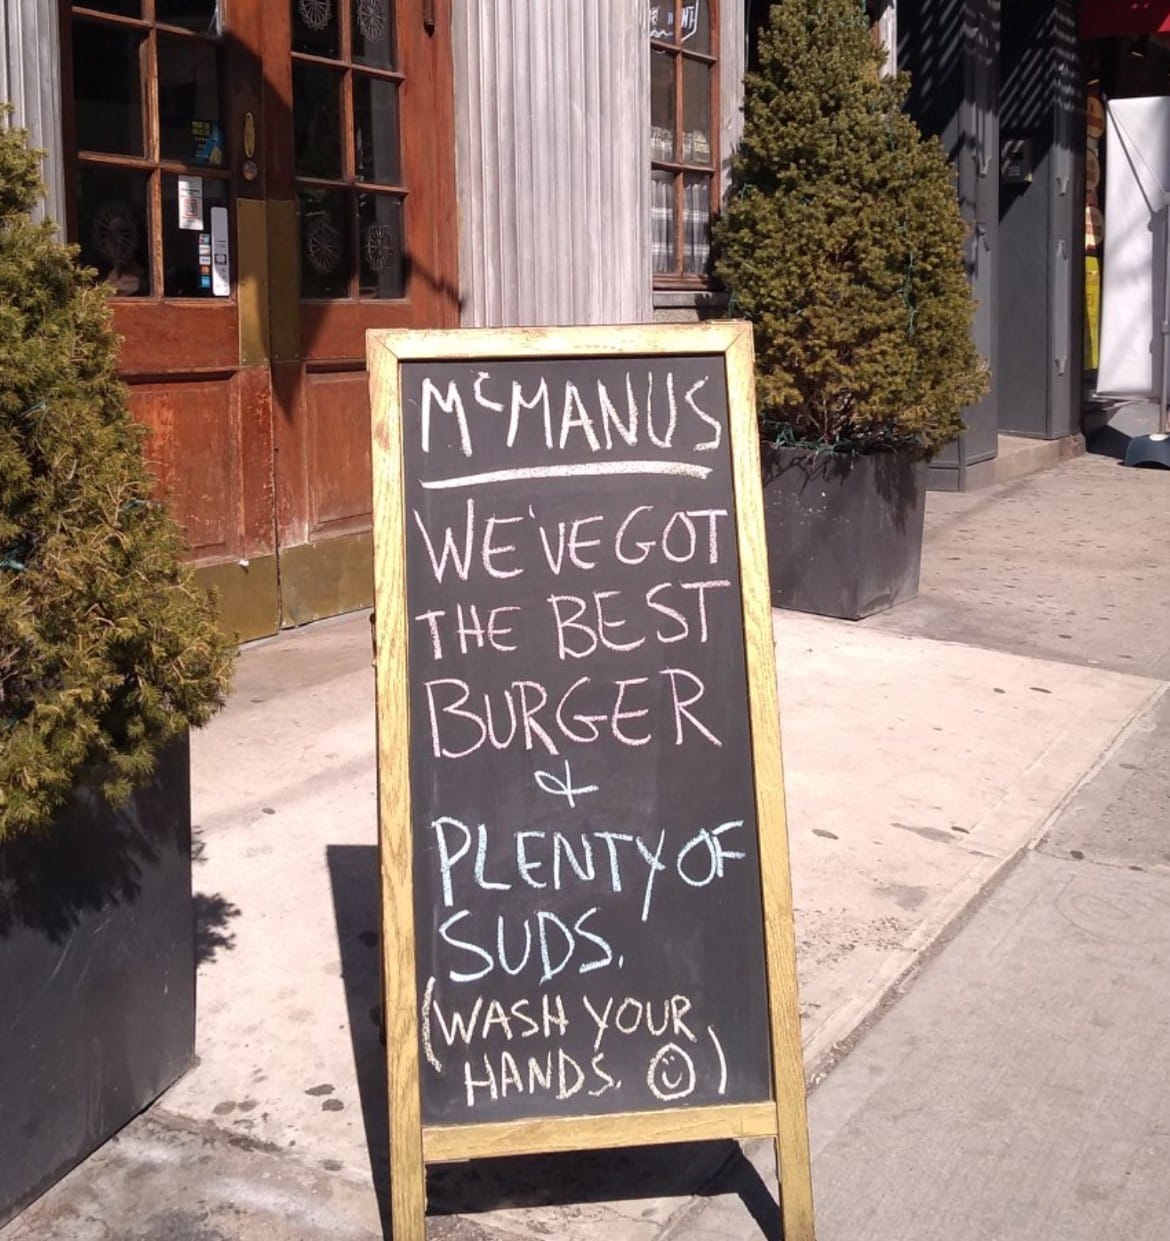 McMANUS
WE'VE GOT
THE BEST
BURGER
&
PLENTY OF
SUDS.
(WASH YOUR
HANDS. ☺)